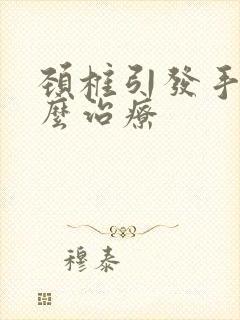 頸椎引發手
麼治療
穆泰